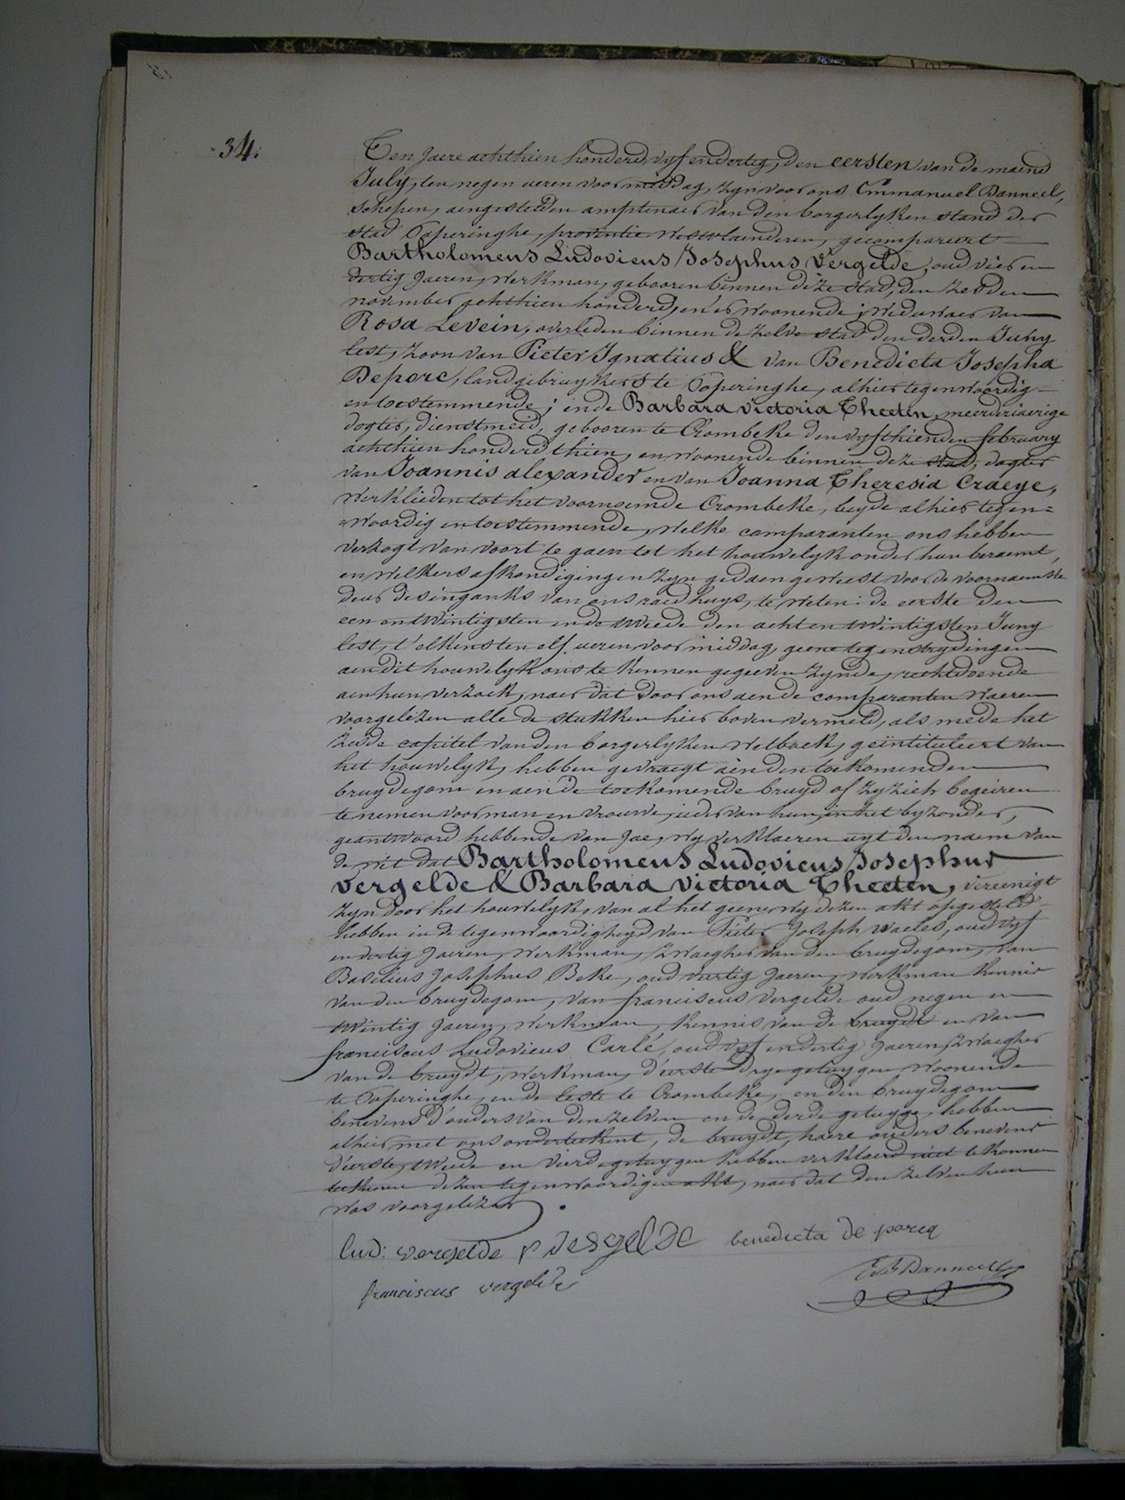 34.
Ten Jaere achthien honderd vyf en dertig, den eersten van de maend
July, ten negen ueren voor middag, zyn voor ons Emmanuel Danneel,
schepen, aengestelden amptenaer van den borgerlyken stand der
stad Poperinghe, provintie Westvlaenderen, gecompareert
Bartholomeus Ludovicus Josephus Vergelde, oud vier en
dertig Jaeren, werkman, gebooren binnen deze stad, den
november achthien honderd, en er woonende; weduwaer van
Rosa Levein, overleden binnen de zelve stad den derden Juny
lest, zoon van Pieter Ignatius & van Benedicta Josepha
Deporc, landgebruykers te Poperinghe, alhier tegenwoordig
en toestemmende; ende Barbara Victoria Theeten, meerderjaerige
dogter, dienstmeid, gebooren te Crombeke den vyfthienden february
achthien honderd thien, en woonende binnen deze stad, dogter
van Joannis alexander en van Joanna Theresia Craeye,
werklieden tot het voornoemde Crombeke, beyde alhier tegen=
woordig en toestemmende, welke comparanten ons hebben
verzogt van voort te gaen tot het houwelyk onder hun beraemt,
en welkers afkondigingen zyn gedaen geweest voor de voornaemste
deur des inganks van ons raedhuys, te weten: de eerste den
een en twintigsten ende tweede den acht en twintigsten Juny
lest, t'elkens ten elf ueren voor middag, geene tegenstrydingen
aen dit houwelyk ons te kennen gegeeven zynde, rechtdoende
aen hun verzoek, naer dat door ons aen de comparanten waeren
voorgelezen alle de stukken hier boven vermeld, als mede het
zesde capitel van den borgerlyken wetboek, geïntituleert van
het houwelyk, hebben gevraegt aen den toekomenden
bruydegom en aen de toekomende bruyd of zy zich begeiren
te nemen voor man en vrouwe, ieder van hun, in het byzonder,
geantwoord hebbende van Jae, wy verklaeren uyt den naem van
de wet dat Bartholomeus Ludovicus Josephus
Vergelde & Barbara Victoria Theeten, vereenigt
zyn door het houwelyk, van al het geene wy dezen akt opgesteld
hebben in de tegenwoordigheyd van Pieter Joseph Waeles, oud vyf
en dertig Jaeren, werkman, zwaegher van den bruydegom, van
Basilius Josephus Beke, oud veertig Jaeren, werkman kennis
van den bruydegom, van franciscus Vergelde oud negen en
twintig Jaeren, werkman, kennis van de bruydt en van
franciscus Ludovicus Carle, oud vyf en dertig Jaeren, zwaegher
van de bruydt, werkman, d'eerste drye getuygen woonende
te Poperinghe, en de leste te Crombeke, en den bruydegom
benevens d'ouders van den zelven en de derde getuyge, hebben
alhier met ons onderteekent, de bruydt, haere ouders benevens
d'eerste, tweede en vierde getuygen hebben verklaerd niet te konnen
teekenen dezen tegenwoordigen akt, naer dat den zelven hun
was voorgelezen
Lud: vergelde P Vesgelde benedicta de porcq
franciscus vergelde
Em Danneel